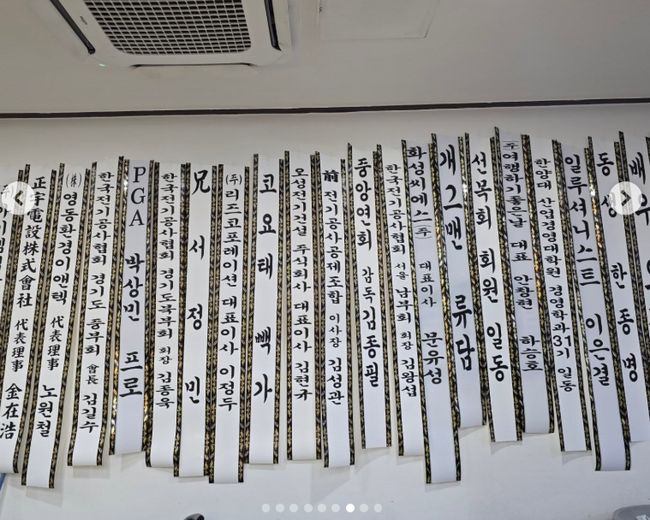 正宇電設株式會社 代表理事 金在浩
(株)영동환경이앤텍 대표이사 노원철
한국전기공사협회 경기도 동부회 會長 김길수
PGA 박상민 프로
한국전기공사협회 경기도북부회 회장 김종욱
兄 서정민
(주)리즈코포레이션 대표이사 이정두
코요태 빽가
오성전기건설 주식회사 대표이사 김현규
前 전기공사공제조합 이사장 김성관
중앙연회 감독 김종필
한국전기공사협회 서울 남부회 회장 김왕섭
화성씨에스(주) 대표이사 문유성
개그맨 류담
선목회 회원 일동
주)여행하기좋은날 대표 안창현 하승호
한양대 산업경영대학원 경영학과31기 일동
일루셔니스트 이은결
동생 한종명
배우